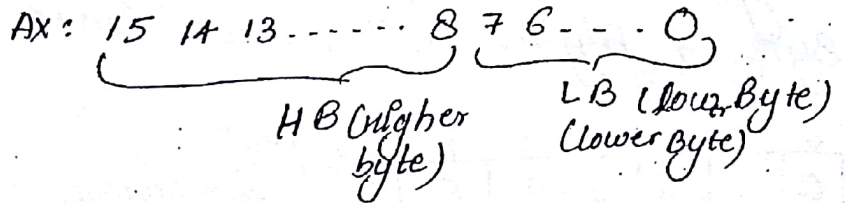 AX: 15 14 13 ------ 8 7 6 --- 0
HB (Higher byte)
LB (lower Byte)
(lower Byte)